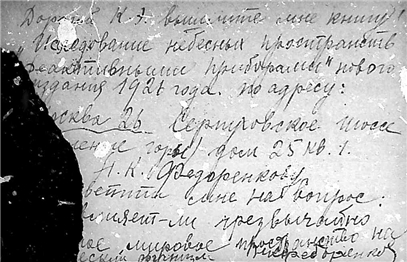 Дорогой К.Э. вышлите мне книгу!
"Исследование небесных пространств
реактивными приборами" нового
издания 1927 года. по адресу:
Москва 26 Серпуховское шоссе
горы дом 25 кв. 1.
А.К. Федоренкову
ответить мне на вопрос:
влияет-ли чрезвычайно
мировое пространство на
А. Федоренков